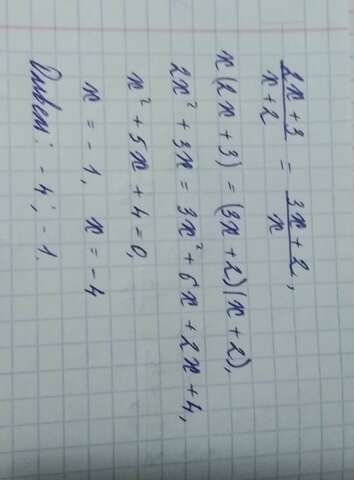 (2x + 3)/(x + 2) = (3x + 2)/x,
x(2x + 3) = (3x + 2)(x + 2),
2x² + 3x = 3x² + 6x + 2x + 4,
x² + 5x + 4 = 0,
x = -1, x = -4
Ответ: -4; -1.